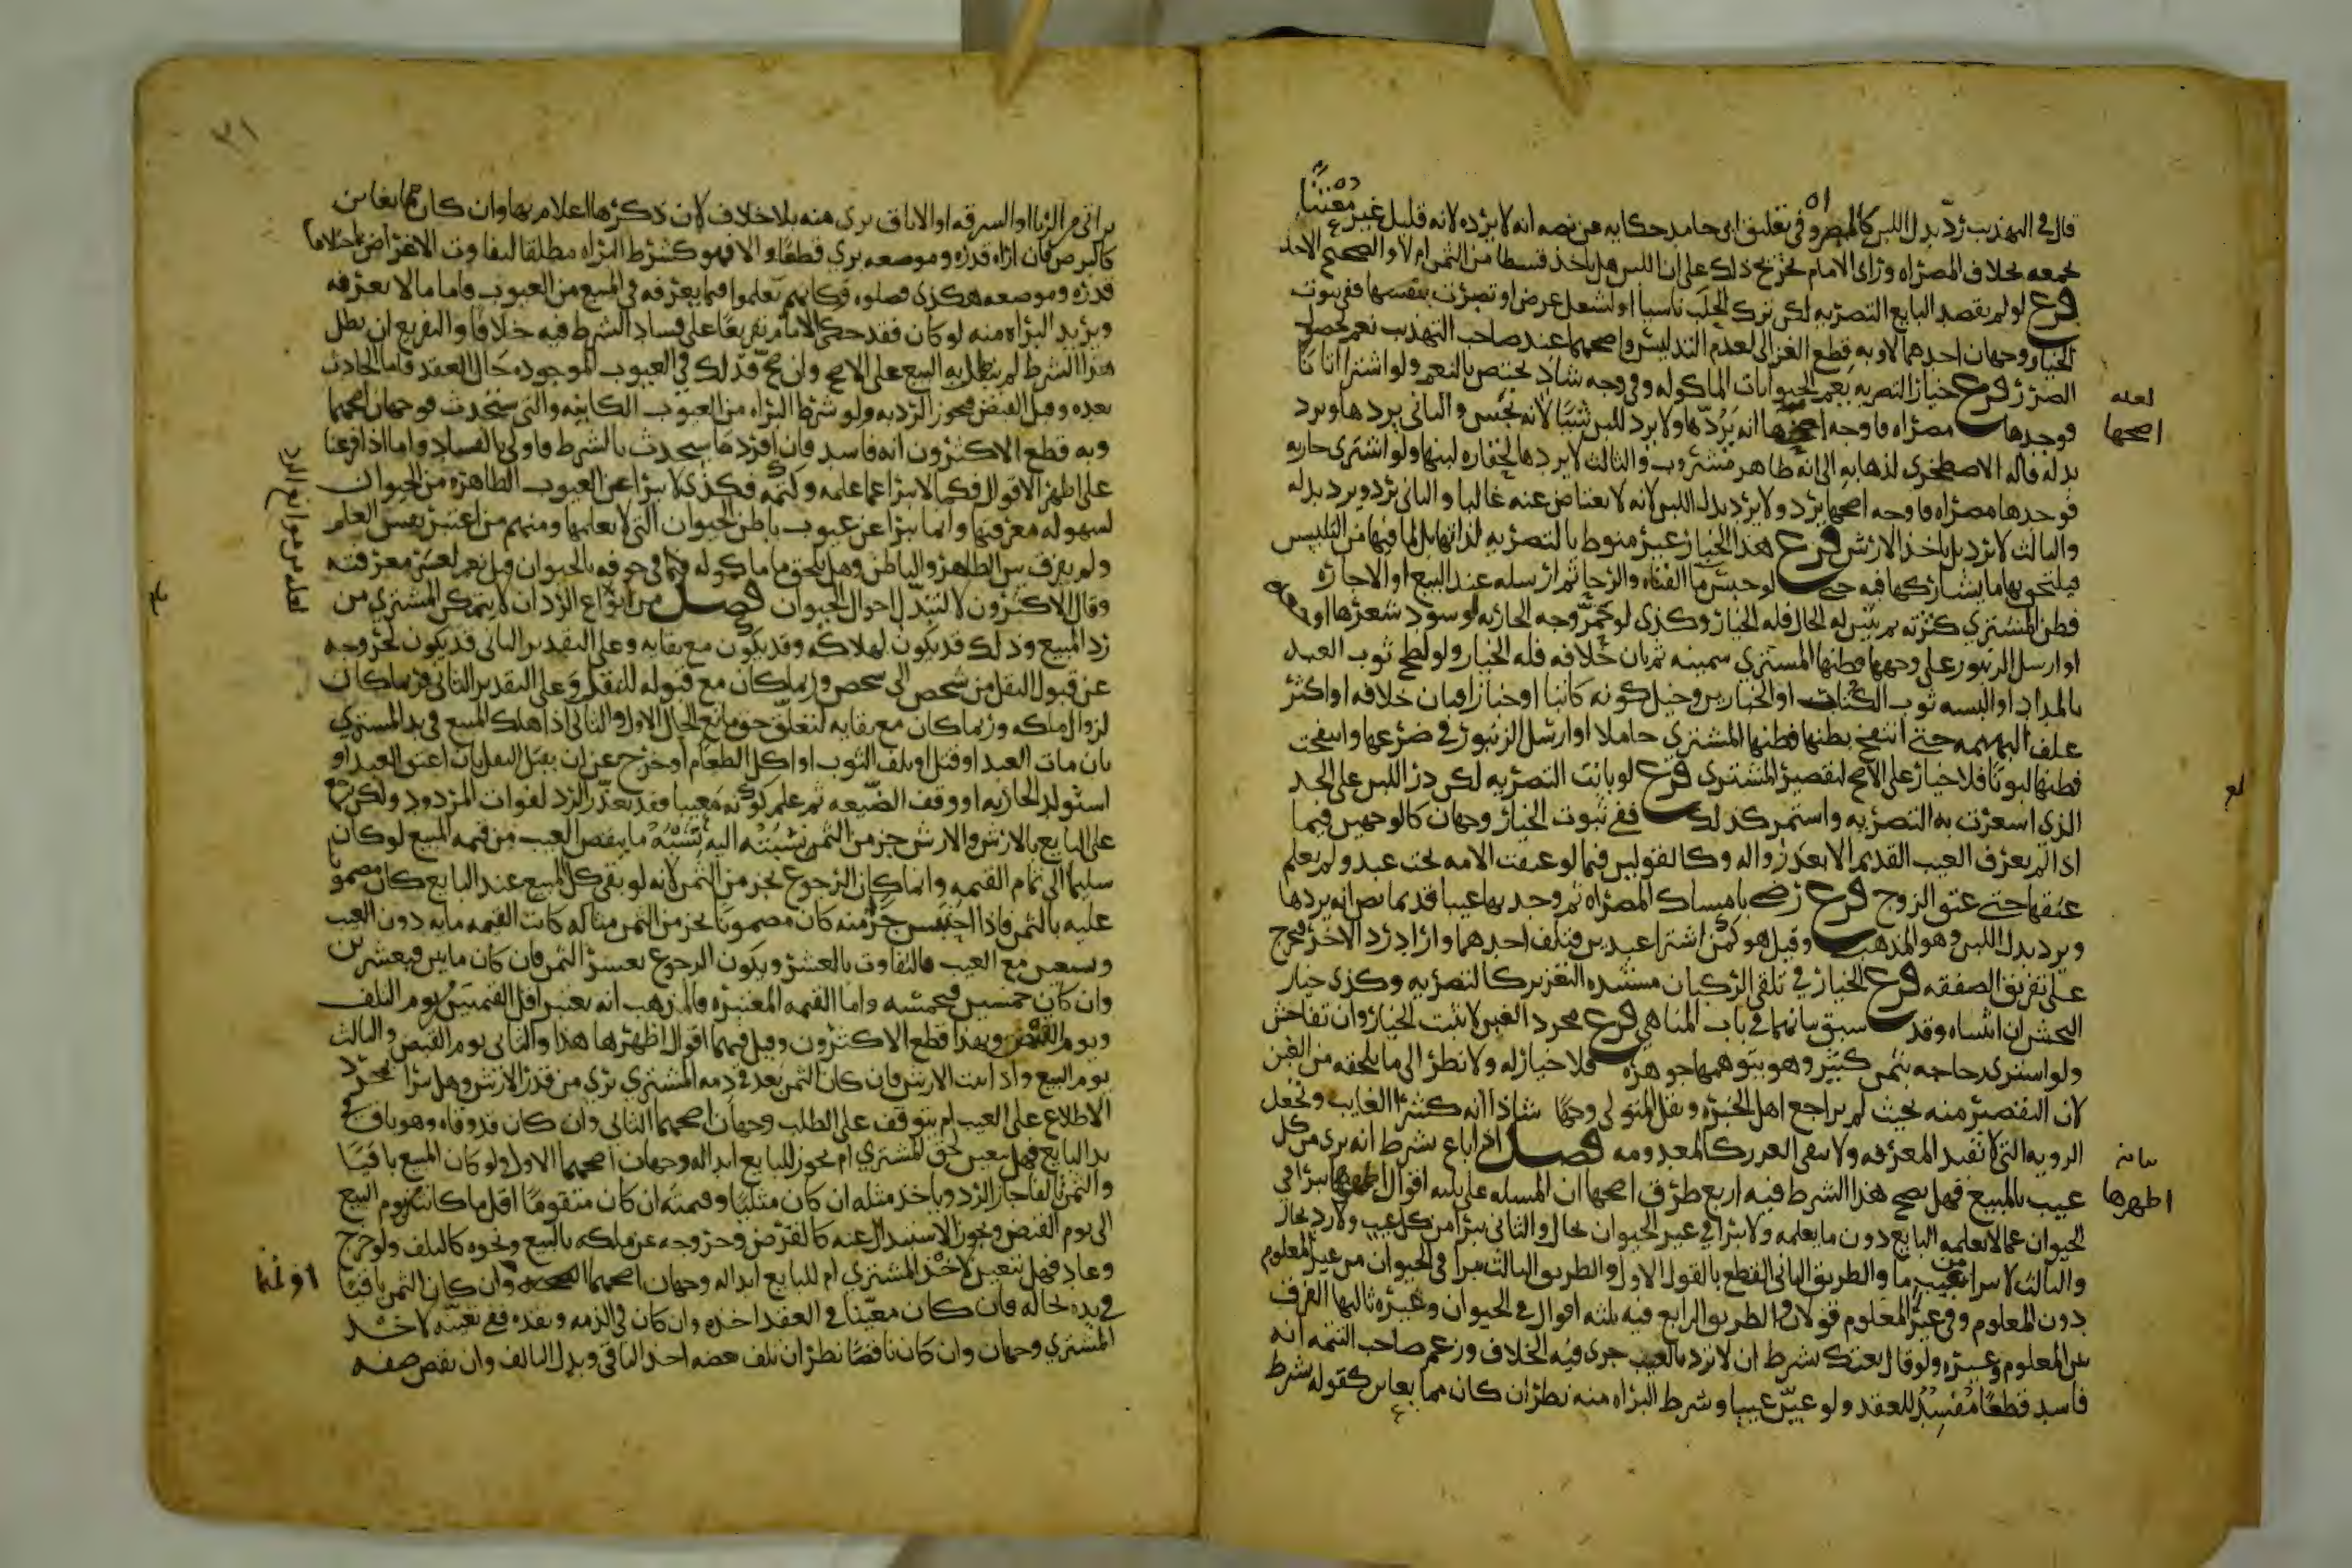 قال في التهذيب ردّ بدل اللبن كالمصراه وفي تعليق ابي حامد حكايه عن نصه انه لا يرده لانه قليل غير معتنٍا
بجمعه بخلاف المصراه وراى الامام تخريج ذلك على ان اللبن هل ياخذ قسطا من الثمن ام لا والصحيح الاخذ
فرع لو لم يقصد البايع التصريه لكن ترك الحلب ناسيا او لشغل عرض او تصرت بنفسها ففي ثبوت
الخيار وجهان احدهما لا وبه قطع الغزالي لعدم التدليس واصحهما عند صاحب التهذيب نعم لحصول
الضرر فرع خيار التصريه يعم الحيوانات الماكوله وفي وجه شاذ يختص بالنعم ولو اشترا اتانا
فوجدها مصراه فاوجه اصحها انه يردّها ولا يرد للبن شيًا لانه نجس والثاني يردها ويرد
بدله قاله الاصطخري لذهابه الى انه طاهر مشروب والثالث لا يردها لحقاره لبنها ولو اشترى جاريه
فوجدها مصراه فاوجه اصحها يرد ولا يرد بدل اللبن لانه لا يعتاض عنه غالبا والثاني يرد ويرد بدله
والثالث لا يرد بل ياخذ الارش فرع هذا الخيار غير منوط بالتصريه لذاتها بل لما فيها من التلبيس
فيلتحق بها ما يشاركها فيه حتى لو حبس ما القناه والرحا ثم ارسله عند البيع او الاجاره
فظن المشتري كثرته ثم تبين له الحال فله الخيار وكذى لو حمّر وجه الجاريه او سوّد شعرها او
او ارسل الزنبور على وجهها فظنها المشتري سمينه ثم بان خلافه فله الخيار ولو لطخ ثوب العبد
بالمداد او البسه ثوب الكتاب او الخبازين وخيل كونه كاتبا او خبازا فبان خلافه او اكثر
علف البهيمه حتى انتفخ بطنها فظنها المشتري حاملا او ارسل الزنبور في ضرعها وانتفخت
فظنها لبونًا فلا خيار على الاصح لتقصير المشتري فرع لو بانت التصريه لكن در اللبن على الحد
الذي اشعرت به التصريه واستمر كذلك ففي ثبوت الخيار وجهان كالوجهين فيما
اذا لم يعرف العيب القديم الا بعد زواله وكالقولين فيما لو عتقت الامه تحت عبد ولم تعلم
عتقها حتى عتق الزوج فرع رضي بامساك المصراه ثم وجد بها عيبا قديما نص انه يردها
ويرد بدل اللبن وهو المذهب وقيل هو كمن اشترا عبدين فتلف احدهما واراد رد الاخر فيخرج
على تفريق الصفقه فرع الخيار في تلقي الركبان مستنده التغرير كالتصريه وكذى خيار
النجش ان اثبتناه وقد سبق بيانهما في باب المناهي فرع مجرد الغبن لا يثبت الخيار وان تفاحش
ولو اشترى زجاجه بثمن كبير وهو يتوهمها جوهره فلا خيار له ولا نظر الى ما يلحقه من الغبن
لان التقصير منه بحيث لم يراجع اهل الخبره ونقل المتولي وجهًا شاذا انه كشرا الغايب وتجعل
الرويه التي لا تفيد المعرفه ولا تنفي الغرر كالمعدومه فصل اذا باع بشرط انه بري من كل
عيب بالمبيع فهل يصح هذا الشرط فيه اربع طرق اصحها ان المسله على ثلثه اقوال اظهرها يبرا في
الحيوان عما لا يعلمه البايع دون ما يعلمه ولا يبرا في غير الحيوان بحال والثاني يبرا من كل عيب ولا رد بحال
والثالث لا يبرا من عيب ما والطريق الثاني القطع بالقول الاول والطريق الثالث يبرا في الحيوان من غير المعلوم
دون المعلوم وفي غير المعلوم قولان والطريق الرابع فيه ثلثه اقوال في الحيوان وغيره ثالثها الفرق
بين المعلوم وغيره ولو قال بعتك بشرط ان لا ترد بالعيب جرى فيه الخلاف وزعم صاحب التتمه انه
فاسد قطعًا مفسد للعقد ولو عيّن عيبا وشرط البراه منه نظر ان كان مما يعاين كقوله بشرط
لعله
اصحها
بيانه
اظهرها
٣١
براتي من الزنا او السرقه او الاباق بري منه بلا خلاف لان ذكرها اعلام بها وان كان مما يعاين
كالبرص فان اراه قدره وموضعه بري قطعًا والا فهو كشرط البراه مطلقا لتفاوت الاغراض باختلاف
قدره وموضعه هكذى فصلوه فكانهم تكلموا فيما يعرفه في المبيع من العيوب فاما ما لا يعرفه
ويريد البراه منه لو كان فقد حكى الامام تفريعًا على فساد الشرط فيه خلافًا والتفريع ان بطل
هذا الشرط لم يبطل به البيع على الاصح وان صحّ فذلك في العيوب الموجوده حال العقد فاما الحادث
بعده وقبل القبض فيجوز الرد به ولو شرط البراه من العيوب الكاينه والتي ستحدث فوجهان اصحهما
وبه قطع الاكثرون انه فاسد فان افرد ما سيحدث بالشرط فاولى بالفساد واما اذا فرعنا
على اظهر الاقوال فكما لا يبرا عما علمه وكتمه فكذى لا يبرا عن العيوب الظاهره من الحيوان
لسهوله معرفتها وانما يبرا عن عيوب باطن الحيوان التي لا يعلمها ومنهم من اعتبر نفس العلم
ولم يفرق بين الظاهر والباطن وهل يلحق ما ماكوله في جوفه بالحيوان قيل نعم لعسر معرفته
وقال الاكثرون لا لتبدّل احوال الحيوان فصل من انواع الرد ان لا يتمكن المشتري من
رد المبيع وذلك قد يكون لهلاكه وقد يكون مع بقايه وعلى التقدير الثاني قد يكون لخروجه
عن قبول النقل من شخص الى شخص وربما كان مع قبوله للنقل وعلى التقدير الثاني فربما كان
لزوال ملكه وربما كان مع بقايه لتعلّق حق مانع الحال الاول والثاني اذا هلك المبيع في يد المشتري
بان مات العبد او قتل او تلف الثوب او اكل الطعام او خرج عن ان يقبل النقل بان اعتق العبد او
استولد الجاريه او وقف الضيعه ثم علم كونه معيبا فقد تعذّر الرد لفوات المردود ولكن يرجع
على البايع بالارش والارش جزء من الثمن نسبته اليه نسبة ما ينقص العيب من قيمه المبيع لو كان
سليما الى تمام القيمه وانما كان الرجوع بجزء من الثمن لانه لو بقي كل المبيع عند البايع كان مضمونا
عليه بالثمن فاذا احتبس جزء منه كان مضمونا بجزء من الثمن مثاله كانت القيمه مايه دون العيب
وتسعين مع العيب فالتفاوت بالعشر ويكون الرجوع بعشر الثمن فان كان مايتين فبعشرين
وان كان خمسين فبخمسه واما القيمه المعتبره فالمذهب انه يعتبر اقل القيمتين يوم التلف
ويوم القبض وبهذا قطع الاكثرون وقيل فيهما اقوال اظهرها هذا والثاني يوم القبض والثالث
يوم البيع واذا ثبت الارش فان كان الثمن بعد في ذمه المشتري بري من قدر الارش وهل يبرا بمجرد
الاطلاع على العيب ام يتوقف على الطلب وجهان اصحهما الثاني وان كان قد وفاه وهو باق في
يد البايع فهل يتعين لحق المشتري ام يجوز للبايع ابداله وجهان اصحهما الاول ولو كان المبيع باقيًا
والثمن تالفا جاز الرد وياخذ مثله ان كان مثليًا وقيمته ان كان متقومًا اقل ما كانت من يوم البيع
الى يوم القبض ويجوز الاستبدال عنه كالقرض وخروجه عن ملكه بالبيع ونحوه كالتلف ولو خرج
وعاد فهل يتعين لاخذ المشتري ام للبايع ابداله وجهان اصحهما وان كان الثمن باقيًا
في يده بحاله فان كان معيّنا في العقد اخذه وان كان في الذمه ونقده ففي تعيّنه لاخذ
المشتري وجهان وان كان ناقصًا نظر ان تلف بعضه اخذ الباقي وبدل التالف وان نقص صفه
لعله من موانع الرد
اولهما